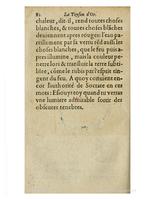 82 La Toyson d'Or.
chaleur, dit-il, rend toutes choses
blanches, & toutes choses blāches
deviennent apres rouges: l'eau pa-
reillement par sa vertu rēd aussi les
choses esparses, que le feu puis a-
pres illumine, mais la couleur pe-
netre lors & translüit la terre subti-
liée, cōme le rubis par l'esprit tin-
gent du feu. A quoy convient en-
cor l'authorité de Socrate en ces
mots: Esiouys toy quand tu verras
vne lumiere admirable sortir des
obscures tenebres.